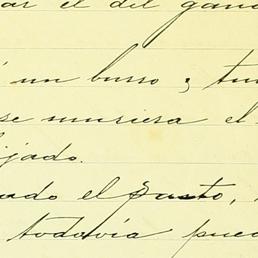 ar el del gana
un burro; tu
se muriera el
ijado.
ado el susto,
todovía pued